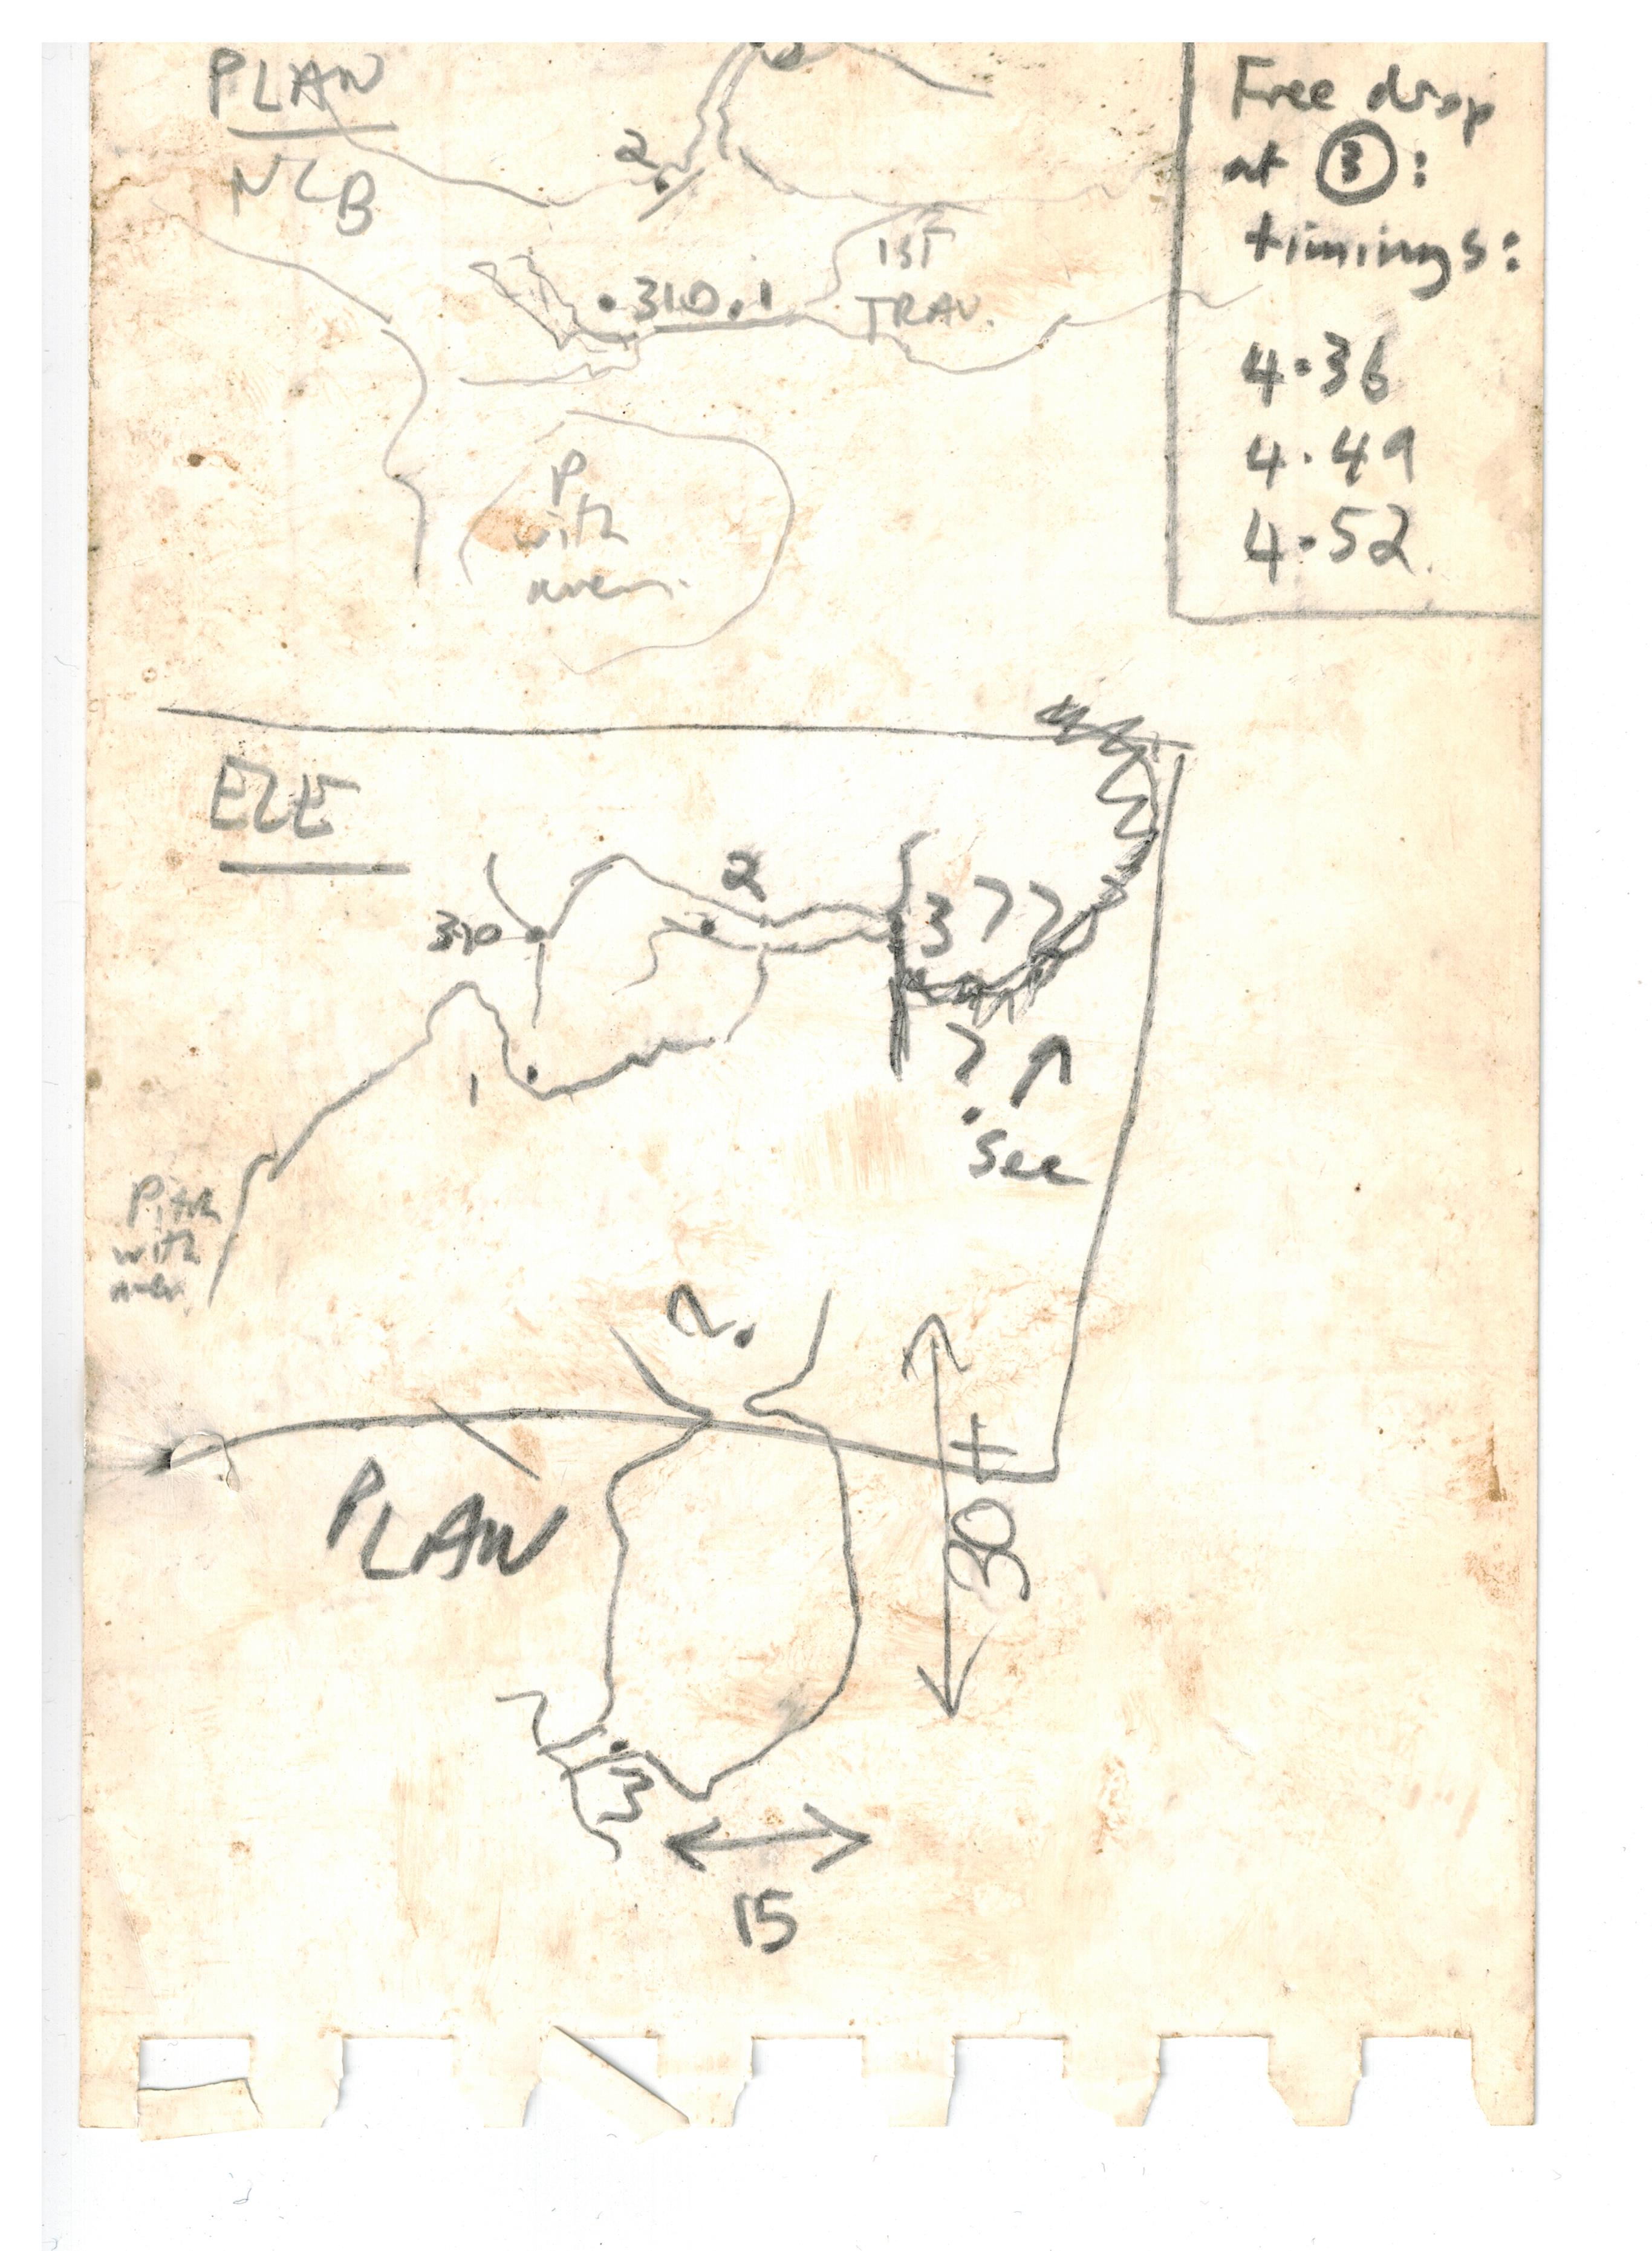 PLAN
NLB
2
.310.1
1ST
TRAV.
P
with
Free drop
at ③:
timings:
4.36
4.49
4.52.
ELE
2
310
3 ? ?
1
? ↑
See
Pitch
with
2.
PLAN
30 ft
3
15